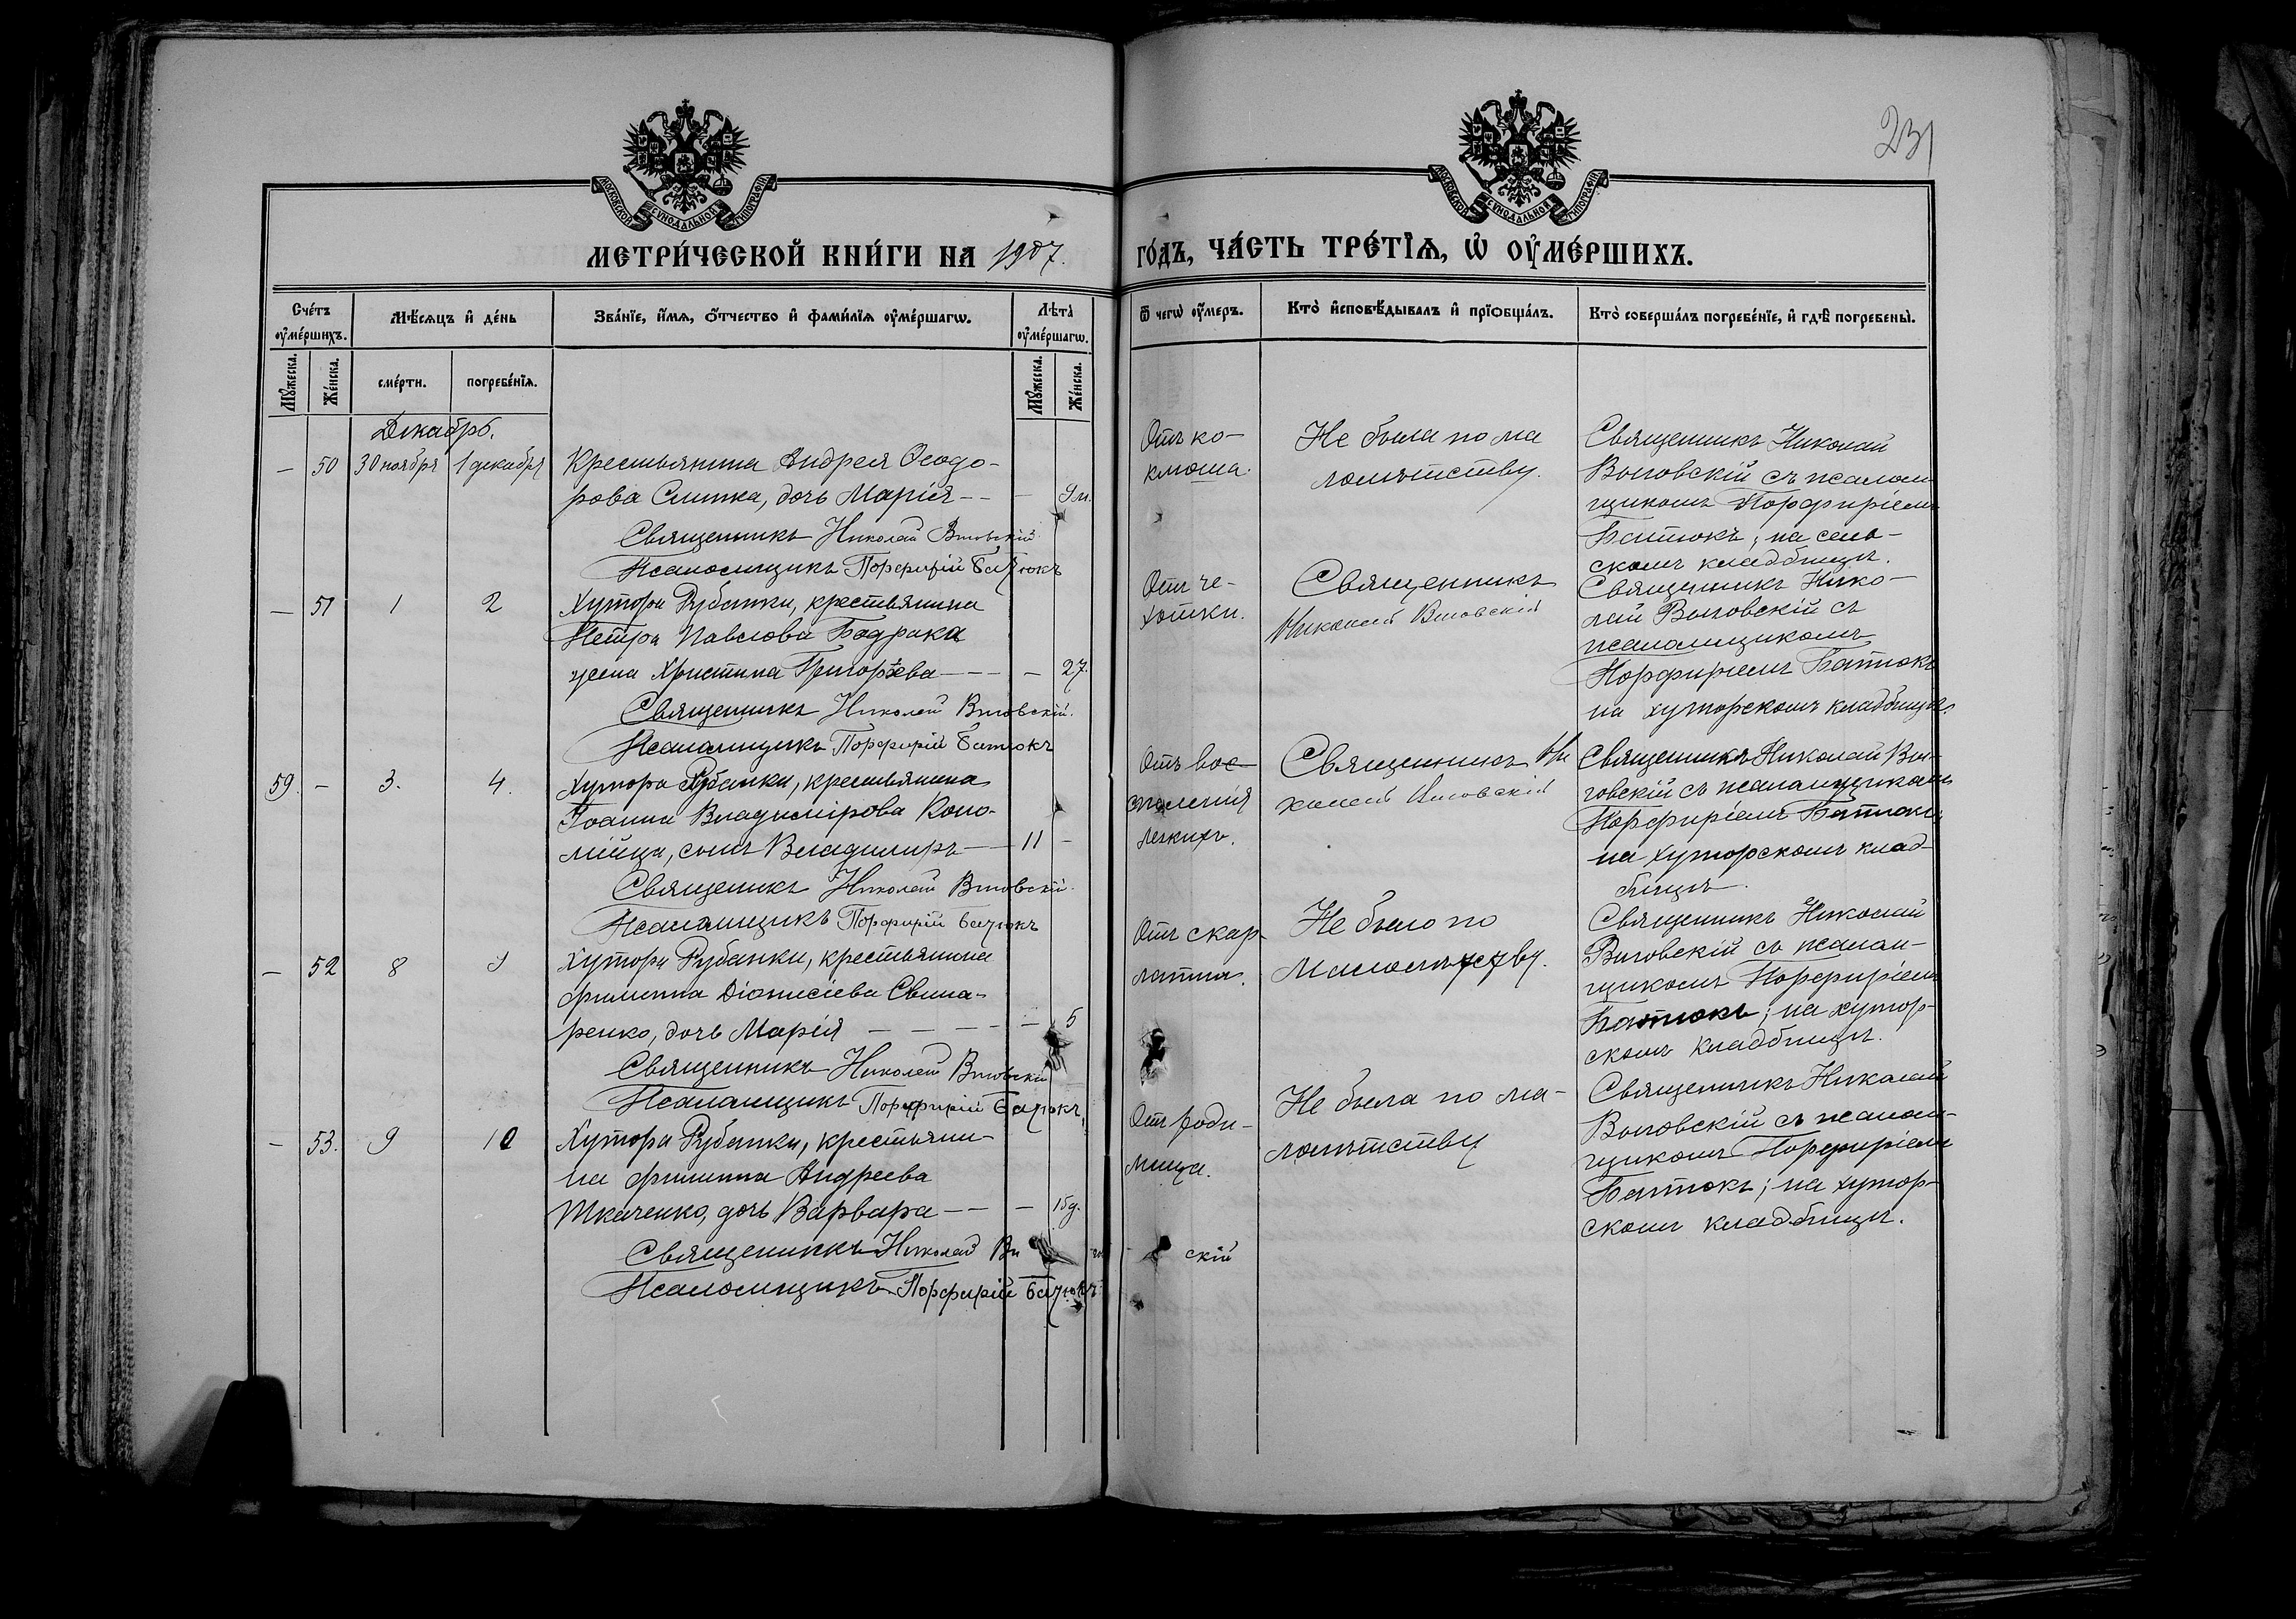 231
МОСКОВСКОЙ СѴНОДАЛЬНОЙ ТИПОГРАФІИ
МОСКОВСКОЙ СѴНОДАЛЬНОЙ ТИПОГРАФІИ
МЕТРИ́ЧЕСКОЙ КНИ́ГИ НА 1907.
ГО́ДЪ, ЧА́СТЬ ТРЕ́ТІѦ, Ѡ҆ ОУ҆МЕ́РШИХЪ.
Сче́тъ оу҆ме́ршихъ.
Мѣ́сѧцъ и҆ де́нь
Зва́нїе, и҆́мѧ, ѻ҆́тчество и҆ фами́лїѧ оу҆ме́ршагѡ.
Лѣ́та̀ оу҆ме́ршагѡ.
Ѿ чегѡ̀ оу҆́меръ.
Кто̀ и҆сповѣ́дывалъ и҆ прїѻбща́лъ.
Кто̀ соверша́лъ погребе́нїе, и҆ гдѣ̀ погребены̀.
Мꙋ́жеска.
Же́нска.
сме́рти.
погребе́нїѧ.
Мꙋ́жеска.
Же́нска.
Декабрь.
— 50 30 ноября 1 декабря
Крестьянина Андрея Ѳеодо-
рова Слипка, дочь Марія — — — 9 м.
Священникъ Николай Виговскій
Псаломщикъ Порфирій Батюкъ
Отъ ко-
клюша.
Не была по ма
лолѣтству.
Священникъ Николай
Виговскій съ псалом
щикомъ Порфиріемъ
Батюкъ; на сель-
скомъ кладбищѣ.
— 51 1 2
Хутора Рубанки, крестьянина
Петра Павлова Бадрака
жена Христина Григорьева — — — — 27.
Священникъ Николай Виговскій.
Псаломщикъ Порфирій Батюкъ
Отъ че-
хотки.
Священникъ
Николай Виговскій
Священникъ Нико-
лай Виговскій съ
псаломщикомъ
Порфиріемъ Батюкъ
на хуторскомъ кладбищѣ.
59. — 3. 4.
Хутора Рубанки, крестьянина
Іоанна Владимірова Коло-
мійца, сынъ Владимиръ — — 11 —
Священикъ Николай Виговскій.
Псаломщикъ Порфирій Батюкъ
Отъ вос-
паленія
легкихъ.
Священникъ Ни
колай Виговскій
Священникъ Николай Ви-
говскій съ псаломщикомъ
Порфиріемъ Батюкъ;
на хуторскомъ клад-
бищѣ.
— 52 8 9
Хутора Рубанки, крестьянина
Филиппа Діонисіева Свина-
ренко, дочь Марія — — — — — 5
Священникъ Николай Виговскій
Псаломщикъ Порфирій Батюкъ,
Отъ скар-
латины.
Не было по
Малолѣтству.
Священникъ Николай
Виговскій съ псалом-
щикомъ Порфиріемъ
Батюкъ; на хутор-
скомъ кладбищѣ.
— 53. 9 10
Хутора Рубанки, крестьяни-
на Филиппа Андреева
Ткаченко, дочь Варвара — — — 15 д.
Священникъ Николай Виговскій
Псаломщикъ Порфирій Батюкъ
Отъ роди-
мица.
Не была по ма-
лолѣтству
Священникъ Николай
Виговскій съ псалом-
щикомъ Порфиріемъ
Батюкъ; на хутор-
скомъ кладбищѣ.